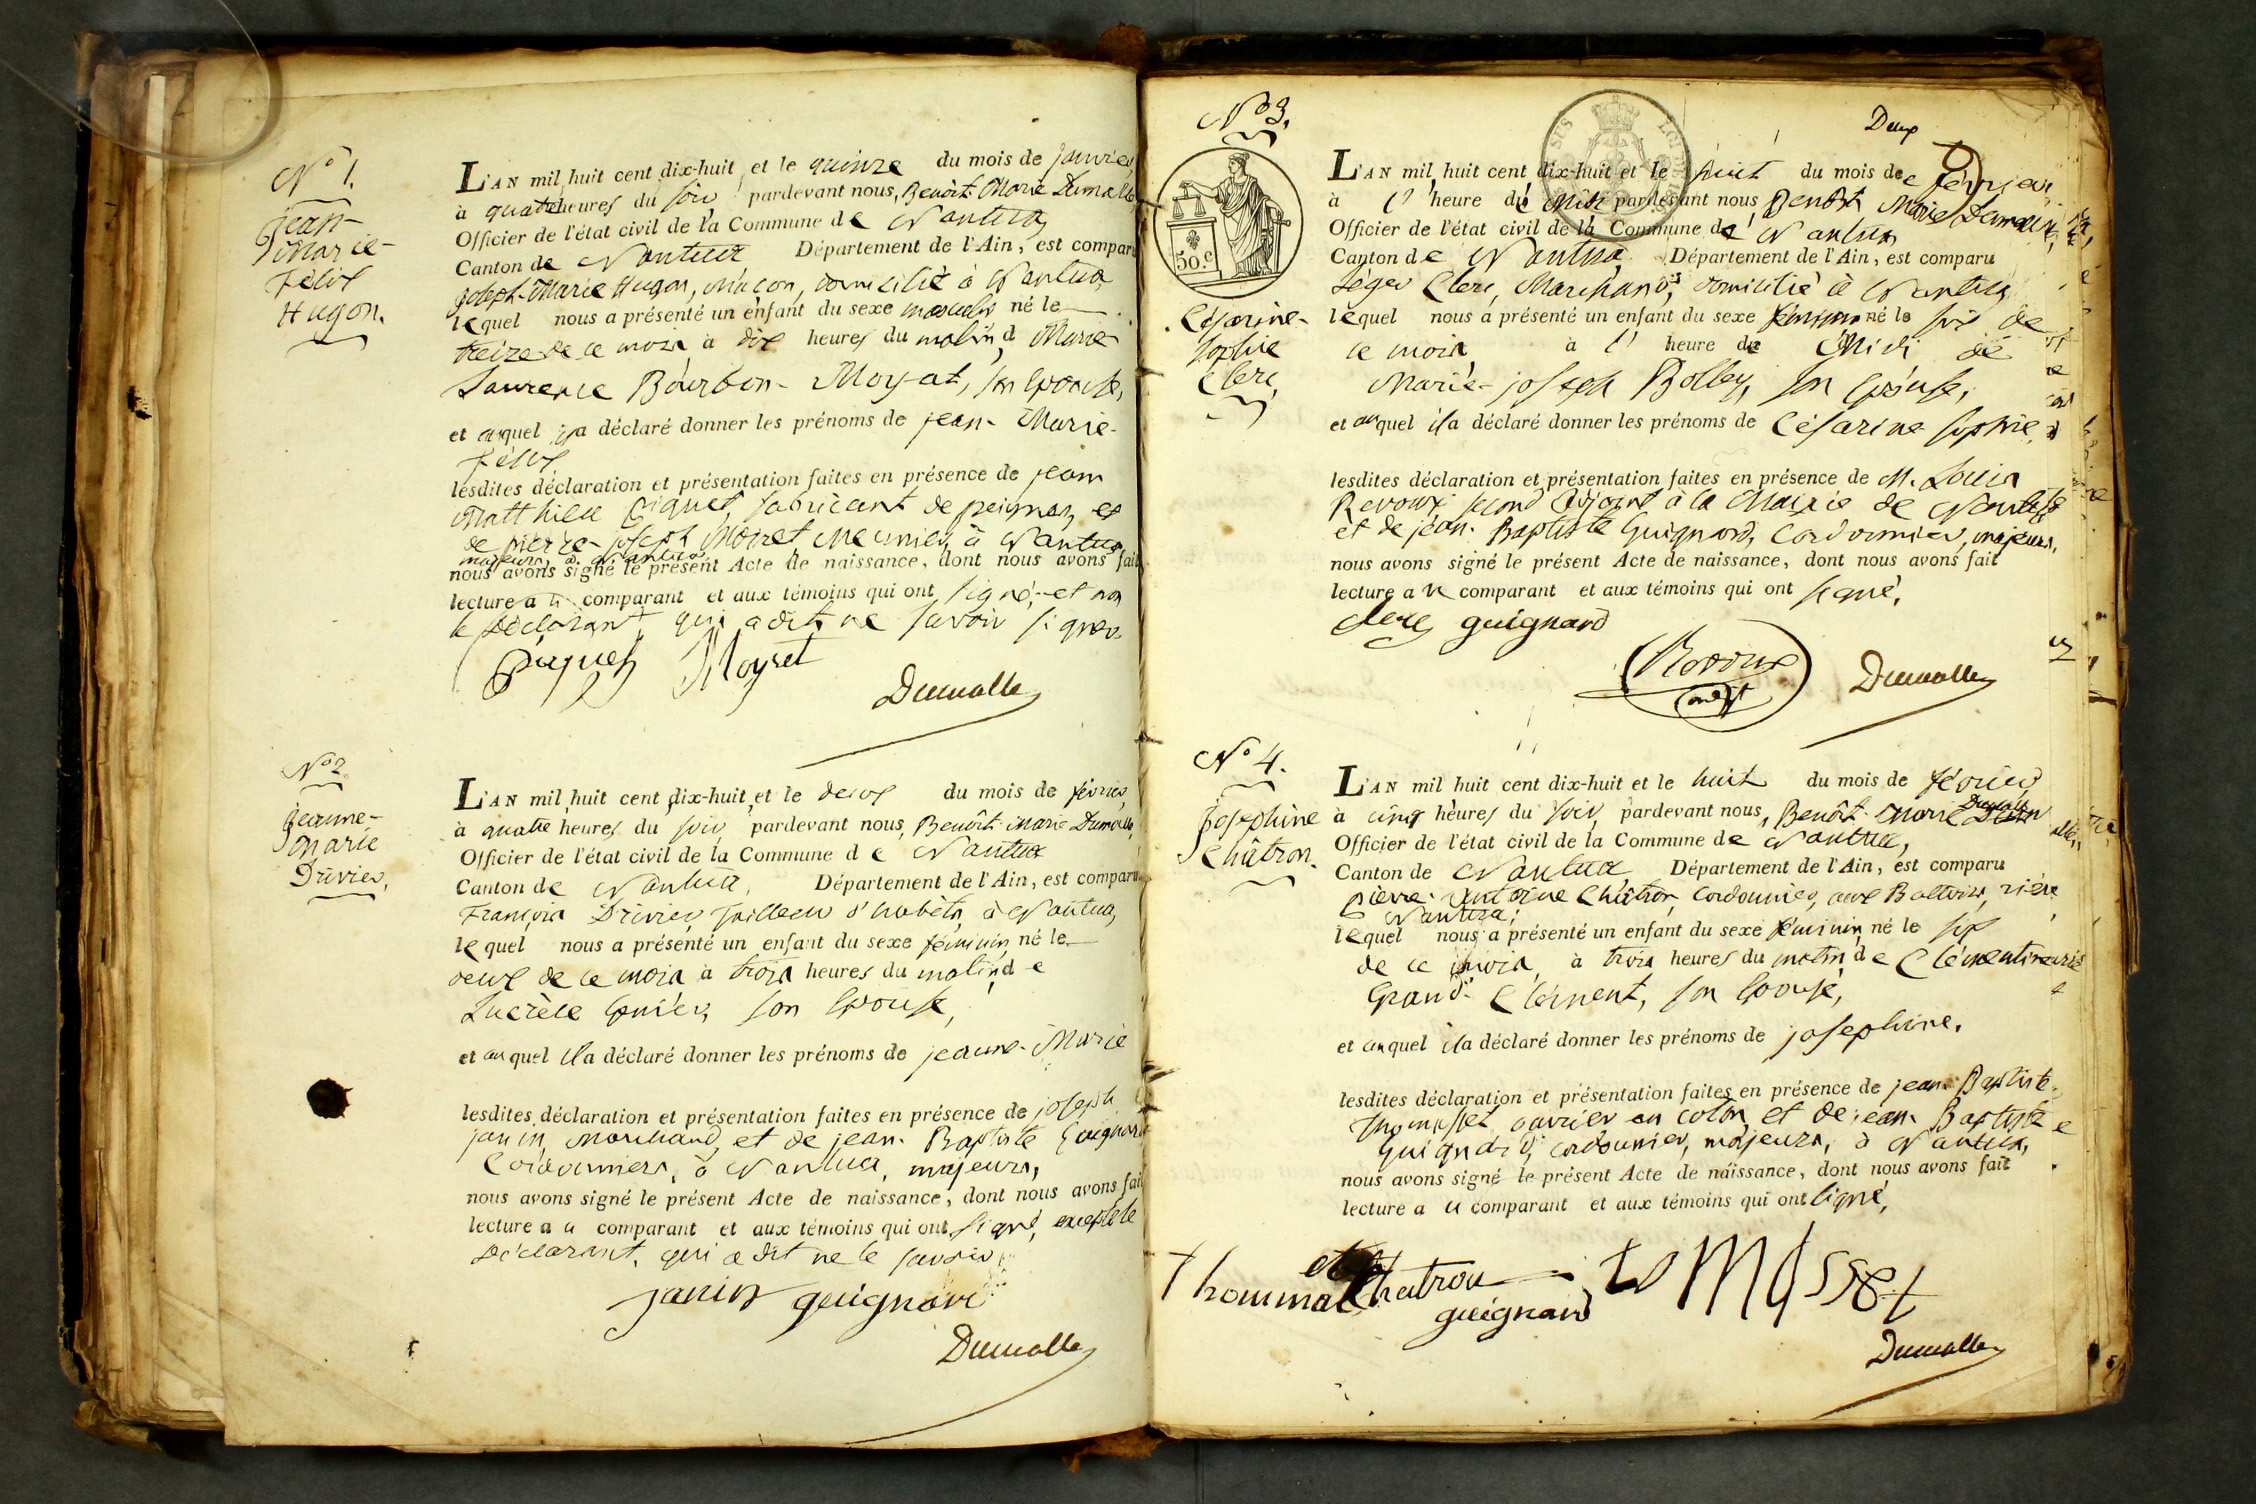 N° 1.
Jean-
Marie-
Félix
Hugon.
L'AN mil huit cent dix-huit et le quinze du mois de janvier
à quatre heures du soir pardevant nous, Benôit-Marie Dumalle,
Officier de l'état civil de la Commune de Nantua
Canton de Nantua Département de l'Ain, est comparu
joseph-Marie Hugon, Maçon, domicilié à Nantua
lequel nous a présenté un enfant du sexe masculin né le
treize de ce mois à dix heures du matin, d Marie-
Laurence Bourbon-Moyat, son Epouse,
et auquel il a déclaré donner les prénoms de jean-Marie-
Félix
lesdites déclaration et présentation faites en présence de jean
Matthieu Piquet, fabricant de peignes, et
de pierre-joseph Moiret Meunier, à Nantua
majeurs, à Nantua
nous avons signé le présent Acte de naissance, dont nous avons fait
lecture au comparant et aux témoins qui ont signé, et non
le déclarant qui a dit ne savoir signer
Piquet Moyret
Dumalle
N° 2.
Jeanne-
Marie
Drivier,
L'AN mil huit cent dix-huit et le deux du mois de février
à quatre heures du soir pardevant nous, Benôit-Marie Dumalle,
Officier de l'état civil de la Commune de Nantua
Canton de Nantua, Département de l'Ain, est comparu
François Drivier tailleur d'habits, à Nantua,
lequel nous a présenté un enfant du sexe féminin né le
deux de ce mois à trois heures du matin, de
Lucrèce son Epouse,
et auquel il a déclaré donner les prénoms de jeanne-Marie
lesdites déclaration et présentation faites en présence de joseph
janin, Marchand, et de jean-Baptiste Guignard
Cordonniers, à Nantua, majeurs,
nous avons signé le présent Acte de naissance, dont nous avons fait
lecture au comparant et aux témoins qui ont signé, excepté le
Déclarant, qui a dit ne le savoir
janin guignard
Dumalle
Deux
N° 3.
50.c
Césarine-
Sophie
Clerc,
L'AN mil huit cent dix-huit et le huit du mois de février
à l' heure de Midi pardevant nous Benôit Marie Dumalle,
Officier de l'état civil de la Commune de Nantua
Canton de Nantua Département de l'Ain, est comparu
Léger Clerc, Marchand, domicilié à Nantua
lequel nous a présenté un enfant du sexe féminin né le six de
ce mois à l' heure de Midi de
Marie-joseph Bolley, son Epouse,
et auquel il a déclaré donner les prénoms de Césarine Sophie,
lesdites déclaration et présentation faites en présence de M. Louis
Revoux second Adjoint à la Mairie de Nantua
et de jean-Baptiste Guignard, Cordonnier, majeurs,
nous avons signé le présent Acte de naissance, dont nous avons fait
lecture au comparant et aux témoins qui ont signé,
Clerc guignard
Revoux
Dumalle
N° 4.
Josephine
Châtron.
L'AN mil huit cent dix-huit et le huit du mois de février
à cinq heures du soir pardevant nous, Benôit-Marie Dumalle
Officier de l'état civil de la Commune de Nantua,
Canton de Nantua Département de l'Ain, est comparu
pierre-Antoine Châtron, Cordonnier, aux Battoirs, rière
Nantua;
lequel nous a présenté un enfant du sexe féminin né le six
de ce mois à trois heures du matin de Clémentine
Grand-Clément, son Epouse,
et auquel il a déclaré donner les prénoms de josephine.
lesdites déclaration et présentation faites en présence de jean-Baptiste
Thomasset ouvrier en coton et de jean-Baptiste
Guignard, cordonnier, majeurs, à Nantua,
nous avons signé le présent Acte de naissance, dont nous avons fait
lecture au comparant et aux témoins qui ont signé,
Chatron
guignard
tomasset
Dumalle